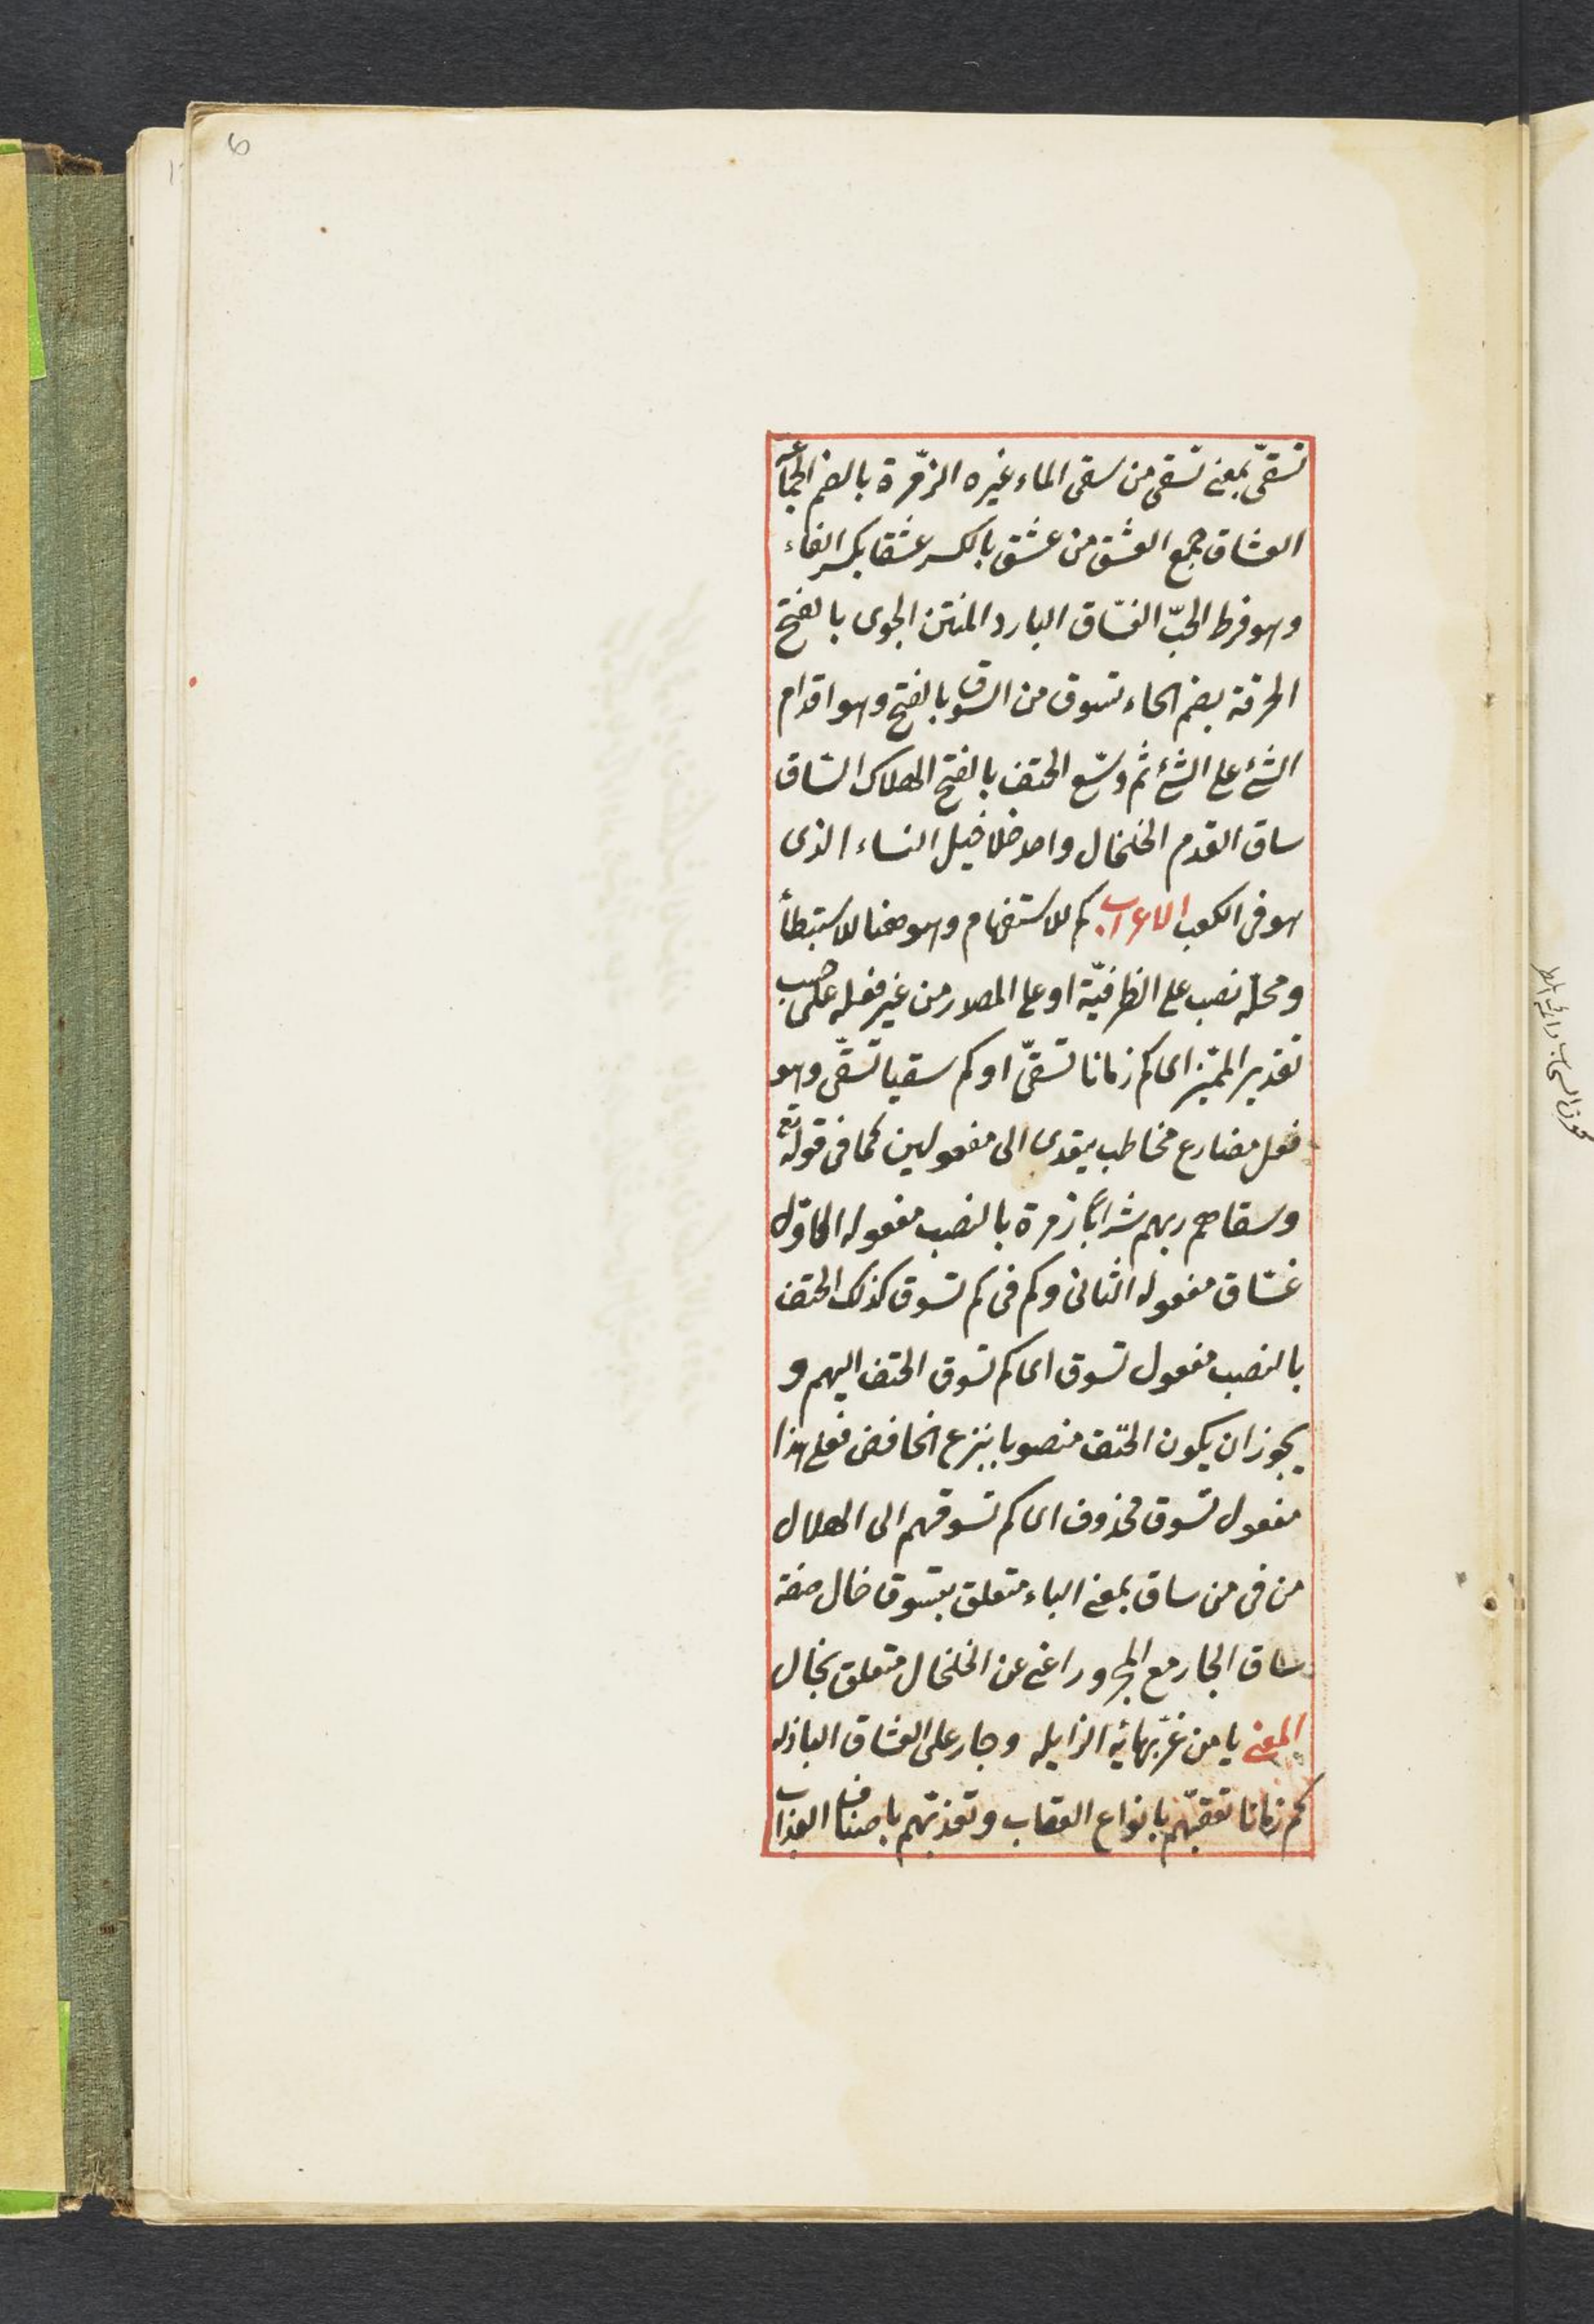 تسقىّ بمعنى تسقى من سقى الماء غيره الزّمرة بالضم الجماعة
العشاق جمع العشق من عشق بالكسر عشقا بكسر الفاء
وهو فرط الحبّ الغسّاق البارد المنتن الجوى بالفتح
الحرقة بضم الحاء تسوق من السوق بالفتح وهو اقدام
الشئ على الشئ ثم وسّع الحتف بالفتح الهلاك الساق
ساق القدم الخلخال واحد خلاخيل النساء الذى
هو فى الكعب الاعراب كم للاستفهام وهو هنا للاستبطأ
ومحله نصب على الظرفيّة او على المصدر من غير فعله على حسب
تقدير المميّز اى كم زمانا تسقىّ او كم سقيا تسقّى وهو
فعل مضارع مخاطب يتعدى الى مفعولين كما فى قوله تع
وسقاهم ربهم شرابًا زمرة بالنصب مفعوله الاوّل
غسّاق مفعوله الثانى وكم فى كم تسوق كذلك الحتف
بالنصب مفعول تسوق اى كم تسوق الحتف اليهم و
يجوز ان يكون الحتف منصوبا بنزع الخافض فعلى هذا
مفعول تسوق محذوف اى كم تسوقهم الى الهلال
من فى من ساق بمعنى الباء متعلق بتسوق خال صفة
ساق الجار مع المجرور اعنى عن الخلخال متعلق بخال
المعنى يا من غرّ بهائه الزايله وجار على العشاق الباذله
كم زمانا تعقبّهم بانواع العقاب وتعذبّهم باصناف العذاب
6